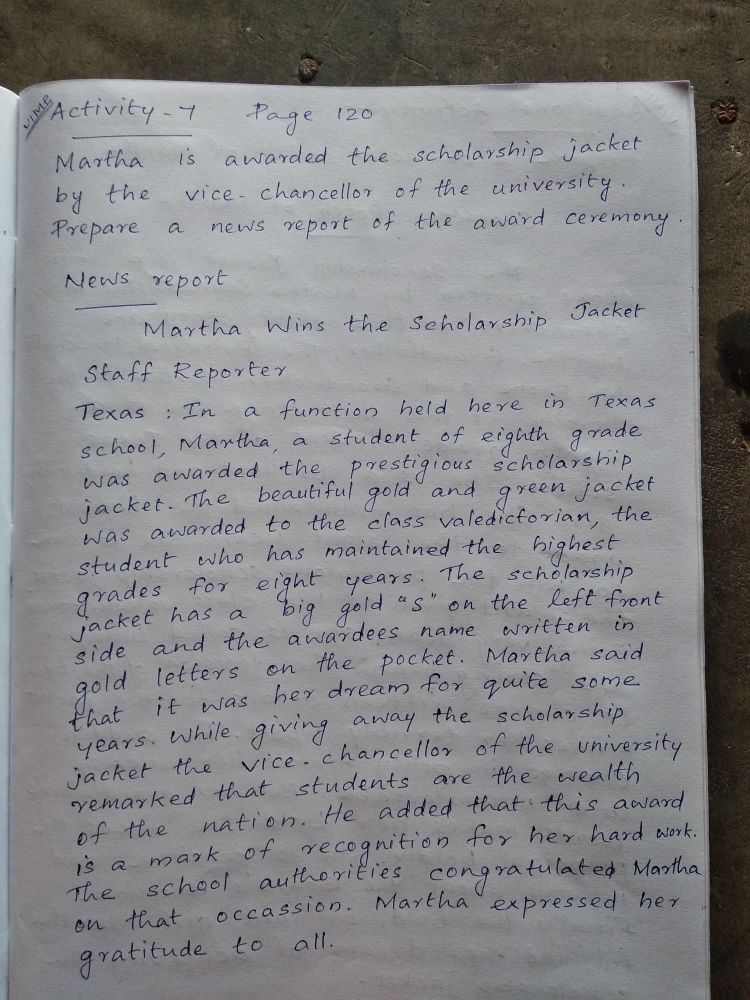 VIMP
Activity - 7 Page 120
Martha is awarded the scholarship jacket
by the vice-chancellor of the university.
Prepare a news report of the award ceremony.
News report
Martha Wins the Scholarship Jacket
Staff Reporter
Texas : In a function held here in Texas
school, Martha, a student of eighth grade
was awarded the prestigious scholarship
jacket. The beautiful gold and green jacket
was awarded to the class valedictorian, the
student who has maintained the highest
grades for eight years. The scholarship
jacket has a big gold "S" on the left front
side and the awardees name written in
gold letters on the pocket. Martha said
that it was her dream for quite some
years. While giving away the scholarship
jacket the vice-chancellor of the university
remarked that students are the wealth
of the nation. He added that this award
is a mark of recognition for her hard work.
The school authorities congratulated Martha
on that occassion. Martha expressed her
gratitude to all.